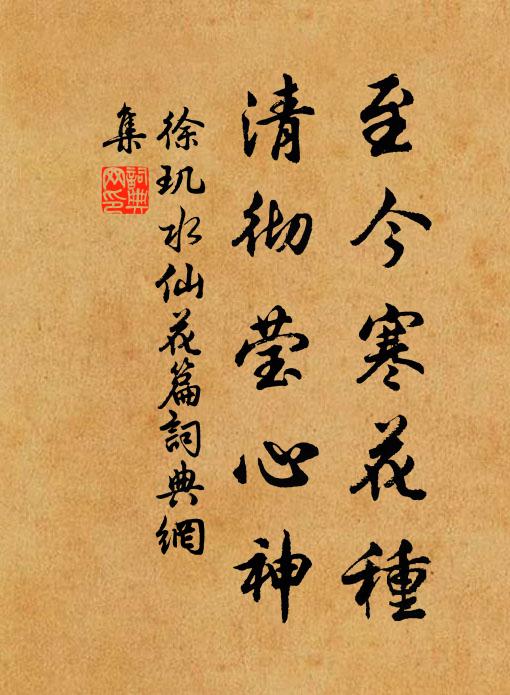 至今寒花種
清彻莹心神
徐玑水仙花篇詞典網
集
詞典
网印